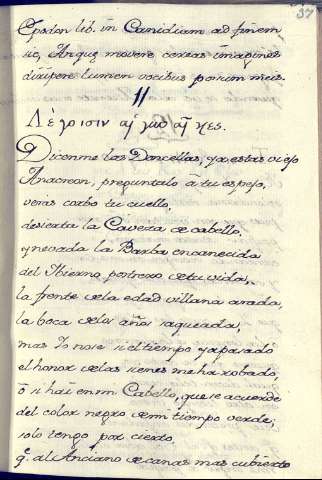 37
Epodon lib. in Canidiam ad finem
sic, An quę movere cereas imagines
diripere lumen vocibus possum meis.
11
Λέγουσιν αἱ γυναῖκες.
Diconme las Doncellas, ya estas viejo
Anacreon, preguntalo à tu espejo,
veras corbo tu cuello,
desierta la Caveza de cabello,
y nevada la Barba encanecida
del Hibierno postrero de tu vida,
la frente de la edad villana arada,
la boca de los años saqueada,
mas Yo no se si el tiempo ya pasado
el honor de las sienes me ha robado
ò si hai en mi Cabello, que se acuerde
del color negro de mi tiempo verde,
solo tengo por cierto,
q.e al Anciano de canas mas cubierto